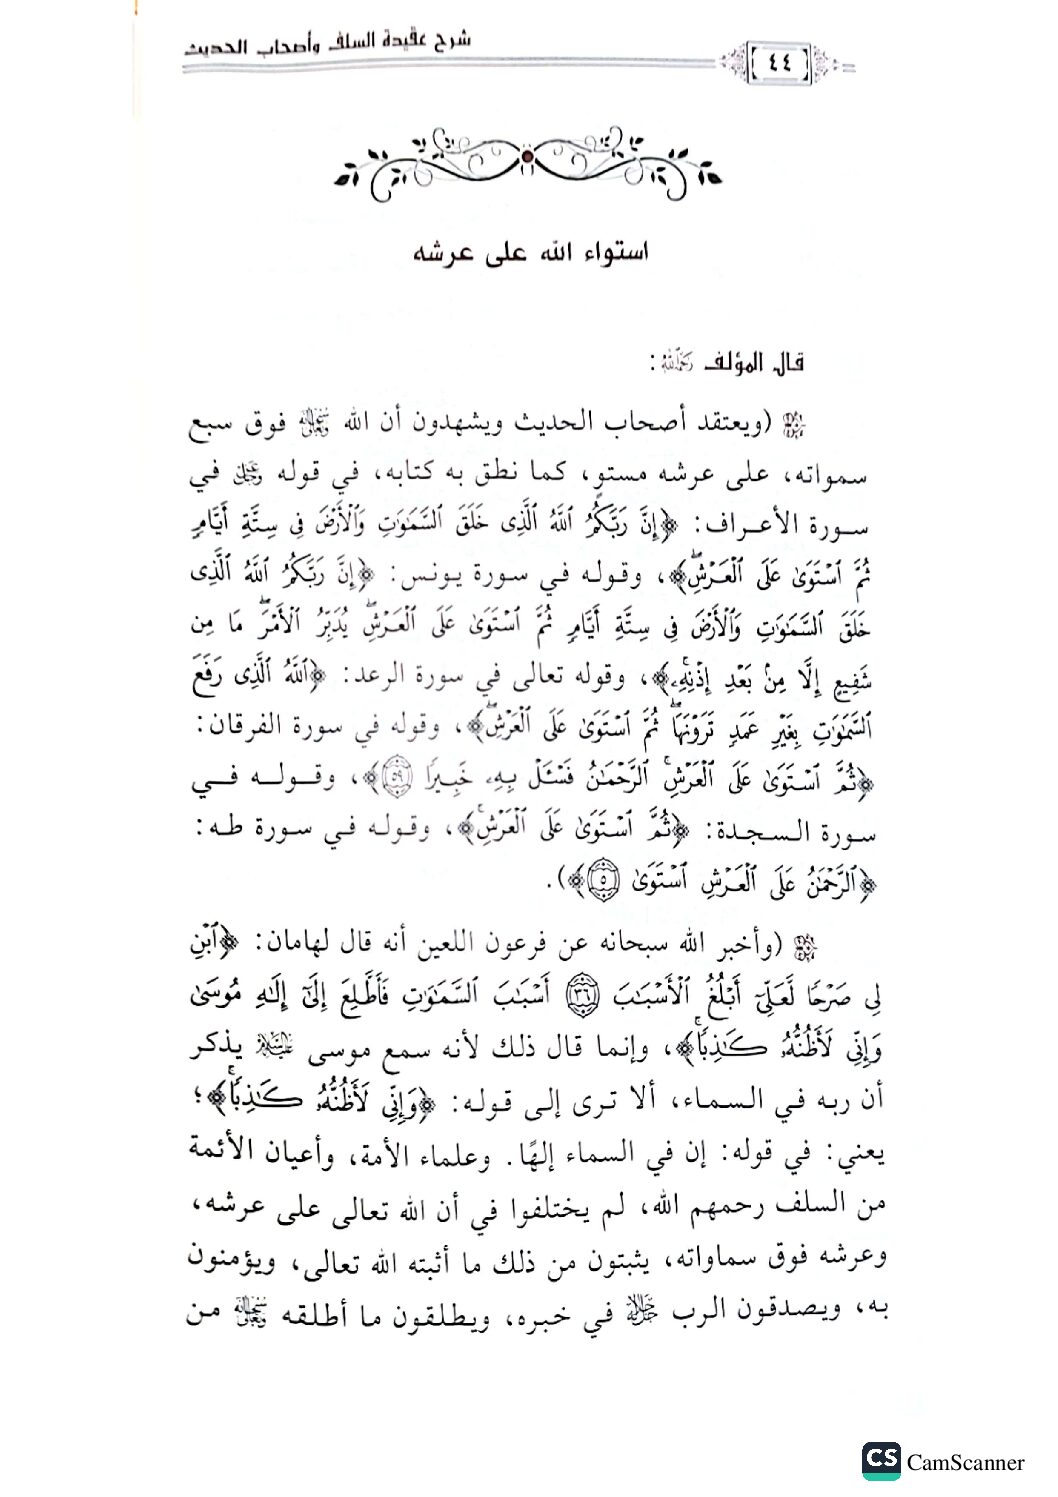 شرح عقيدة السلف وأصحاب الحديث
٤٤
استواء الله على عرشه
قال المؤلف رَحِمَهُ اللَّهُ:
(ويعتقد أصحاب الحديث ويشهدون أن الله سُبْحَانَهُ وَتَعَالَى فوق سبع
سمواته، على عرشه مستوٍ، كما نطق به كتابه، في قوله عَزَّ وَجَلَّ في
سورة الأعراف: ﴿إِنَّ رَبَّكُمُ ٱللَّهُ ٱلَّذِى خَلَقَ ٱلسَّمَٰوَٰتِ وَٱلْأَرْضَ فِى سِتَّةِ أَيَّامٍ
ثُمَّ ٱسْتَوَىٰ عَلَى ٱلْعَرْشِۖ﴾، وقوله في سورة يونس: ﴿إِنَّ رَبَّكُمُ ٱللَّهُ ٱلَّذِى
خَلَقَ ٱلسَّمَٰوَٰتِ وَٱلْأَرْضَ فِى سِتَّةِ أَيَّامٍ ثُمَّ ٱسْتَوَىٰ عَلَى ٱلْعَرْشِۖ يُدَبِّرُ ٱلْأَمْرَۖ مَا مِن
شَفِيعٍ إِلَّا مِنۢ بَعْدِ إِذْنِهِۦۚ﴾، وقوله تعالى في سورة الرعد: ﴿ٱللَّهُ ٱلَّذِى رَفَعَ
ٱلسَّمَٰوَٰتِ بِغَيْرِ عَمَدٍ تَرَوْنَهَاۖ ثُمَّ ٱسْتَوَىٰ عَلَى ٱلْعَرْشِۖ﴾، وقوله في سورة الفرقان:
﴿ثُمَّ ٱسْتَوَىٰ عَلَى ٱلْعَرْشِۚ ٱلرَّحْمَٰنُ فَسْـَٔلْ بِهِۦ خَبِيرًا ٥٩﴾، وقوله في
سورة السجدة: ﴿ثُمَّ ٱسْتَوَىٰ عَلَى ٱلْعَرْشِۚ﴾، وقوله في سورة طه:
﴿ٱلرَّحْمَٰنُ عَلَى ٱلْعَرْشِ ٱسْتَوَىٰ ٥﴾).
(وأخبر الله سبحانه عن فرعون اللعين أنه قال لهامان: ﴿ٱبْنِ
لِى صَرْحًا لَّعَلِّىٓ أَبْلُغُ ٱلْأَسْبَٰبَ ٣٦ أَسْبَٰبَ ٱلسَّمَٰوَٰتِ فَأَطَّلِعَ إِلَىٰٓ إِلَٰهِ مُوسَىٰ
وَإِنِّى لَأَظُنُّهُۥ كَٰذِبًاۚ﴾، وإنما قال ذلك لأنه سمع موسى عَلَيْهِ السَّلَامُ يذكر
أن ربه في السماء، ألا ترى إلى قوله: ﴿وَإِنِّى لَأَظُنُّهُۥ كَٰذِبًاۚ﴾؛
يعني: في قوله: إن في السماء إلهًا. وعلماء الأمة، وأعيان الأئمة
من السلف رحمهم الله، لم يختلفوا في أن الله تعالى على عرشه،
وعرشه فوق سماواته، يثبتون من ذلك ما أثبته الله تعالى، ويؤمنون
به، ويصدقون الرب جَلَّ جَلَالُهُ في خبره، ويطلقون ما أطلقه سُبْحَانَهُ وَتَعَالَى من
CS CamScanner